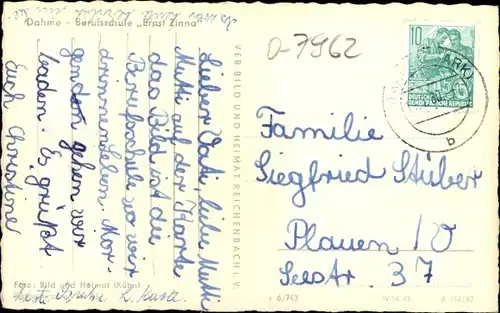 Dahme - Berufsschule „Ernst Zinna"
Lieber Vati, liebe Mutti
Mutti auf der Karte
das Bild ist die
Berufsschule wo wir
drinnen leben. Mor-
gen gehen wir
baden. Es grüßt
Euch Christine
Foto: Bild und Heimat (Kühn)
VEB BILD UND HEIMAT REICHENBACH i. V.
0-7962
10
DEUTSCHE
DEMOKRATISCHE REPUBLIK
MARK)
b
Familie
Siegfried Stüber
Plauen / V
Seestr. 37
6/743
IV 14 45